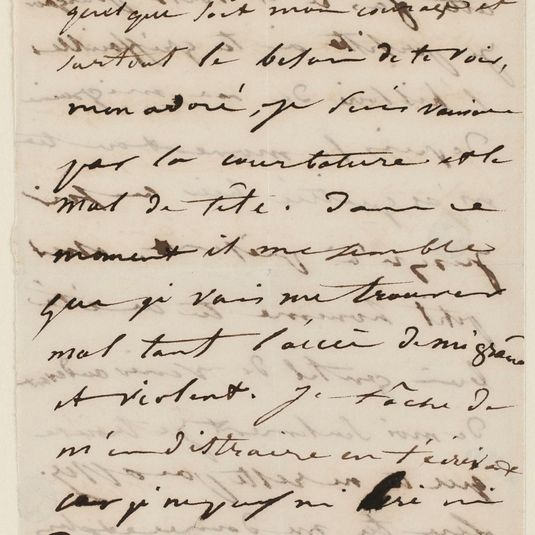 quelque soit mon courage et
surtout le besoin de te voir,
mon adoré, je suis vaincue
par la courbature et le
mal de tête. Dans ce
moment il me semble
que je vais me trouver
mal tant l'accès de migraine
est violent. Je tâche de
m'en distraire en t'écrivant
car je ne puis ni lire ni